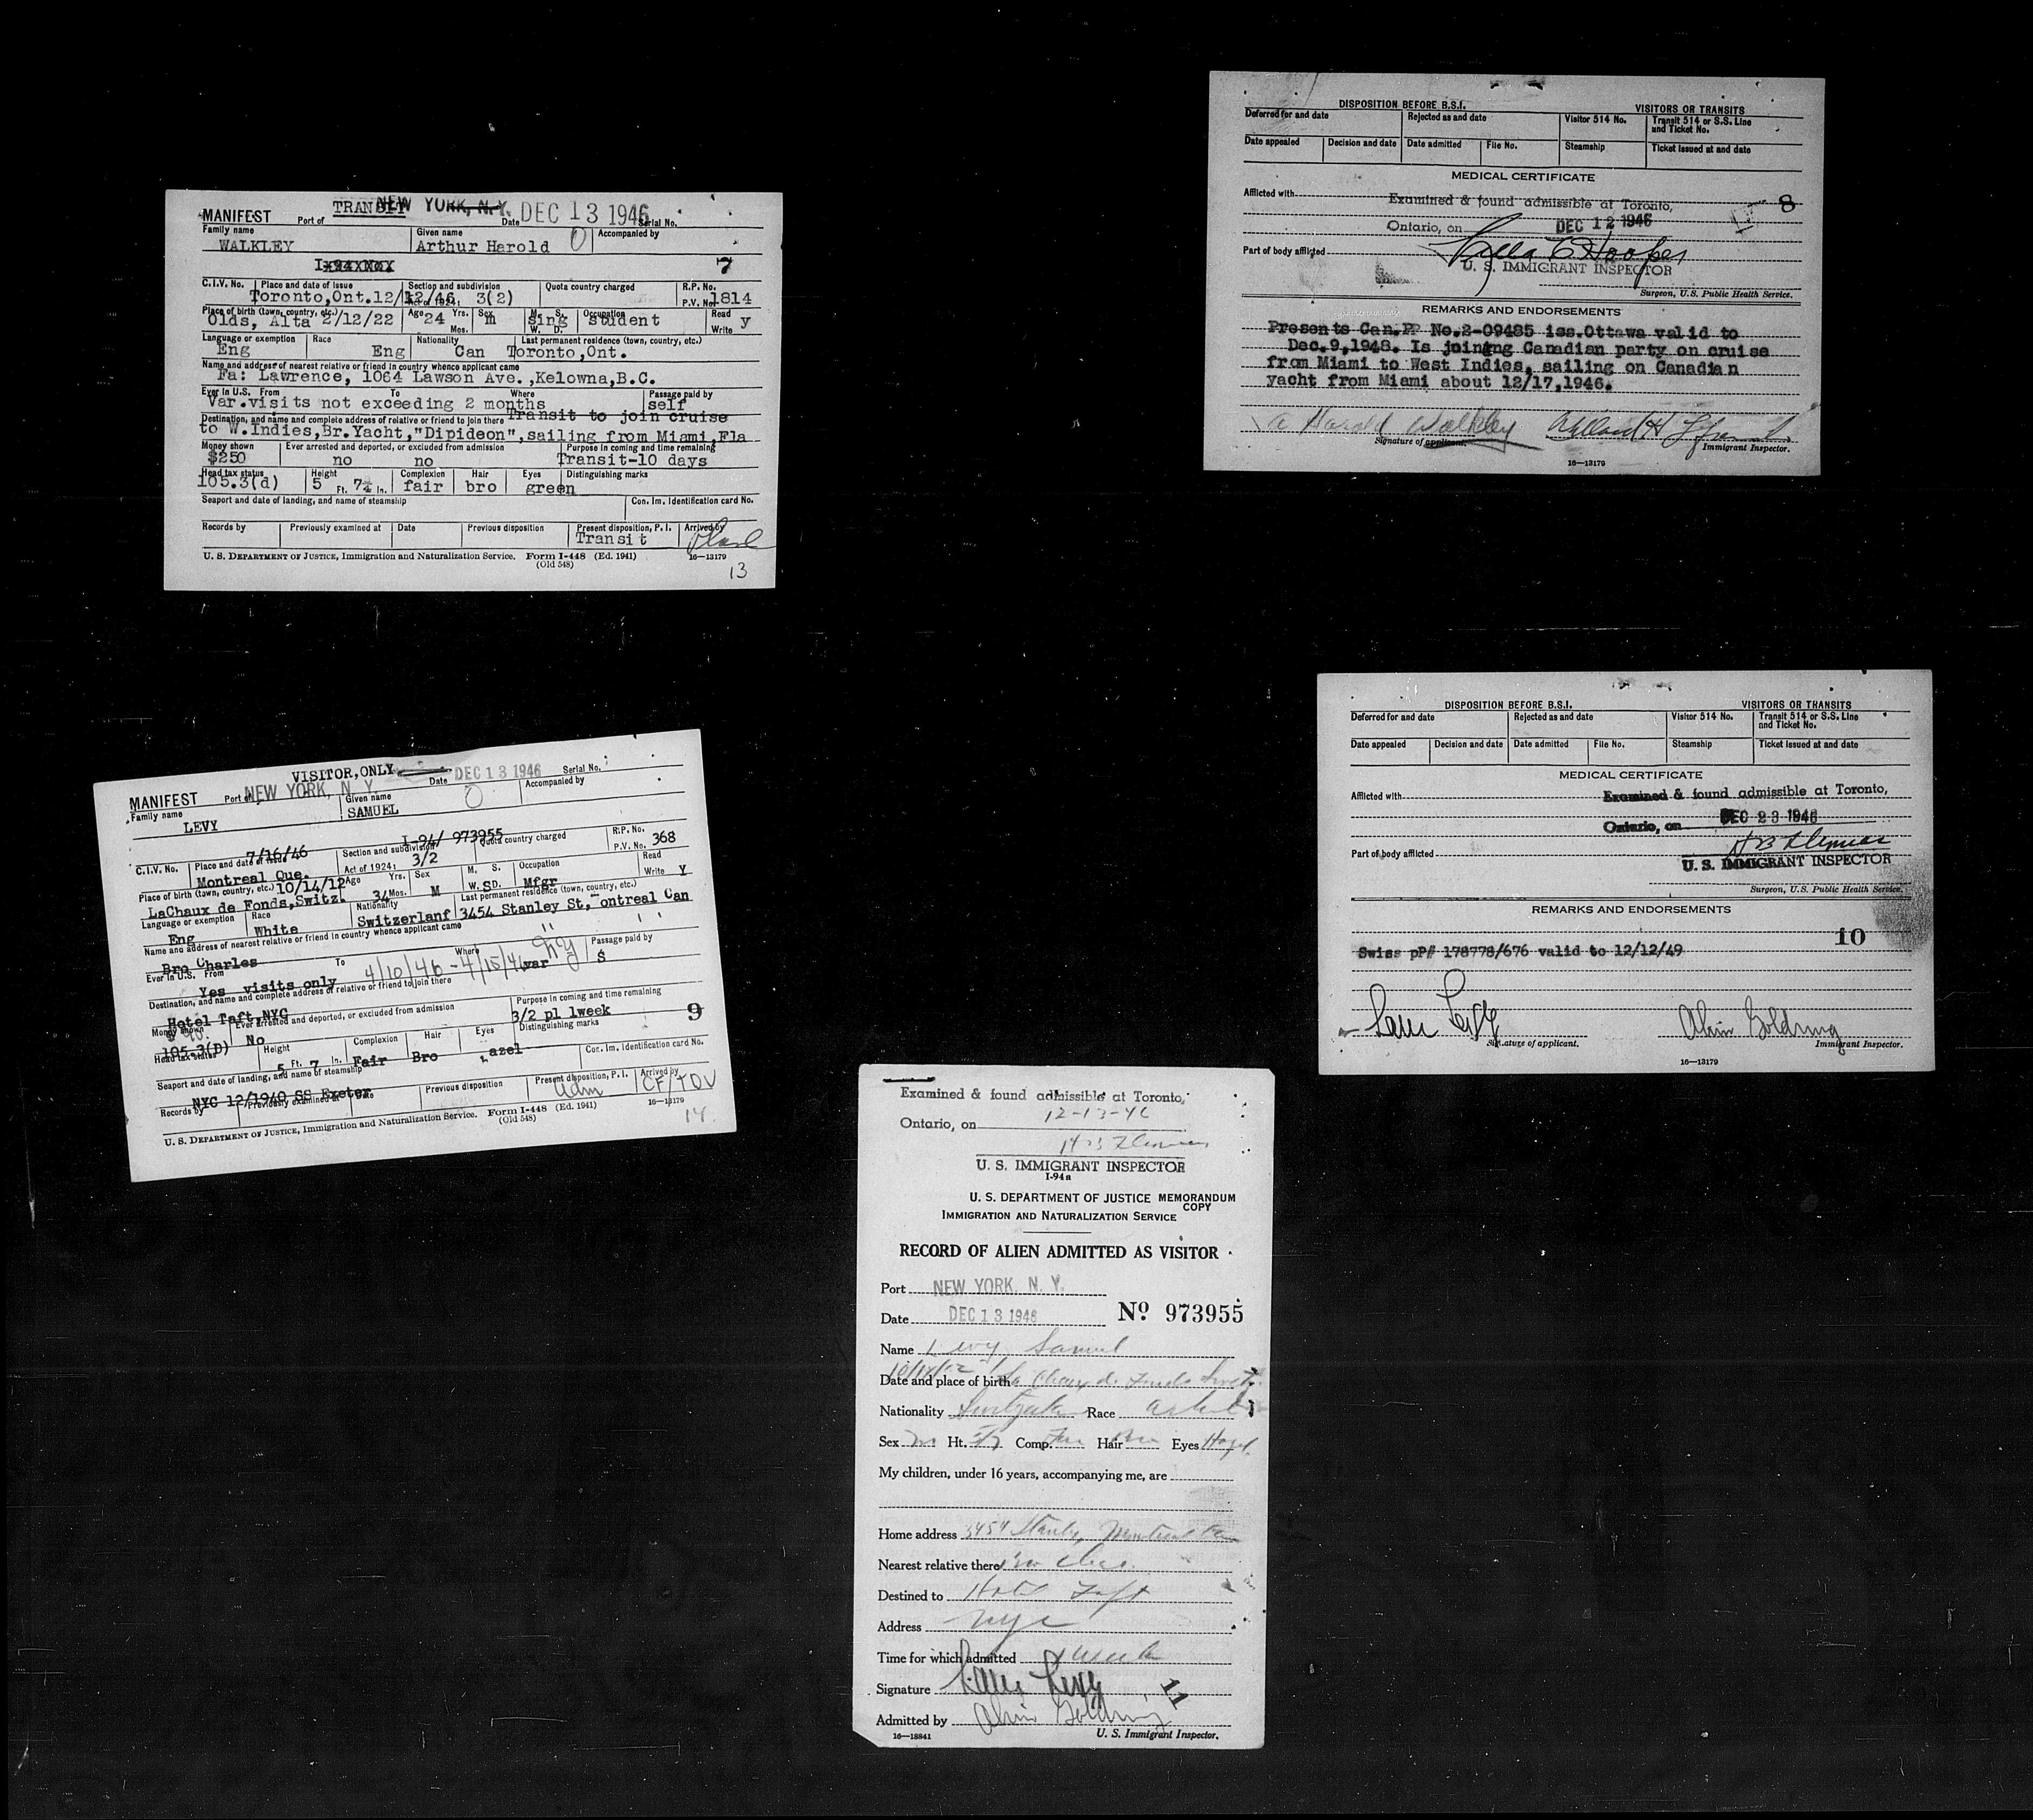 TRANSIT NEW YORK, N.Y. DEC 13 1946
MANIFEST Port of Date Serial No.
Family name Given name Accompanied by
WALKLEY Arthur Harold 0
I-94xNoX 7
C.I.V. No. Place and date of issue Section and subdivision Quota country charged R.P. No.
Toronto,Ont.12/12/46 Act of 1924: 3(2) P.V. No. 1814
Place of birth (town, country, etc.) Age Yrs. Sex M. S. Occupation Read
Olds, Alta 2/12/22 24 m sing student y
Mos. W. D. Write
Language or exemption Race Nationality Last permanent residence (town, country, etc.)
Eng Eng Can Toronto,Ont.
Name and address of nearest relative or friend in country whence applicant came
Fa: Lawrence, 1064 Lawson Ave.,Kelowna,B.C.
Ever in U.S. From To Where Passage paid by
Var.visits not exceeding 2 months self
Transit to join cruise
Destination, and name and complete address of relative or friend to join there
to W.Indies,Br.Yacht,"Dipideon",sailing from Miami,Fla
Money shown Ever arrested and deported, or excluded from admission Purpose in coming and time remaining
$250 no no Transit-10 days
Head tax status Height Complexion Hair Eyes Distinguishing marks
105.3(d) 5 Ft. 7¼ In. fair bro green
Seaport and date of landing, and name of steamship Con. Im. Identification card No.
Records by Previously examined at Date Previous disposition Present disposition, P. I. Arrived by
Transit
U. S. DEPARTMENT OF JUSTICE, Immigration and Naturalization Service. Form I-448 (Ed. 1941) 16—13179
(Old 548)
13
DISPOSITION BEFORE B.S.I. VISITORS OR TRANSITS
Deferred for and date Rejected as and date Visitor 514 No. Transit 514 or S.S. Line and Ticket No.
Date appealed Decision and date Date admitted File No. Steamship Ticket issued at and date
MEDICAL CERTIFICATE
Afflicted with Examined & found admissible at Toronto, 8
Ontario, on DEC 12 1946
Part of body afflicted Hooper
U. S. IMMIGRANT INSPECTOR
Surgeon, U.S. Public Health Service.
REMARKS AND ENDORSEMENTS
Presents Can.PP No.2-09485 iss.Ottawa valid to
Dec.9,1948. Is joining Canadian party on cruise
from Miami to West Indies, sailing on Canadian
yacht from Miami about 12/17,1946.
A Harold Walkley
Signature of applicant. Immigrant Inspector.
16—13179
VISITOR,ONLY DEC 13 1946 Serial No.
MANIFEST Port of NEW YORK, N. Y. Date
Family name Given name Accompanied by
LEVY SAMUEL 0
I-94/ 973955
7/16/46
C.I.V. No. Place and date of issue Section and subdivision Quota country charged R.P. No.
Montreal Que. Act of 1924: 3/2 P.V. No. 368
Place of birth (town, country, etc.) 10/14/12 Age Yrs. Sex M. S. Occupation Read
LaChaux de Fonds,Switz. 34 Mos. M W. SD. Mfgr Write Y
Language or exemption Race Nationality Last permanent residence (town, country, etc.)
Eng White Switzerlanf 3454 Stanley St, ontreal Can
Name and address of nearest relative or friend in country whence applicant came
Bro Charles " NY
Ever in U.S. From To Where Passage paid by
Yes visits only 4/10/46 - 4/15/46 var $
Destination, and name and complete address of relative or friend to join there
Hotel Taft,NYC
Money shown Ever arrested and deported, or excluded from admission Purpose in coming and time remaining
No 3/2 pl 1week 9
105.3(D)
Head tax status Height Complexion Hair Eyes Distinguishing marks
5 Ft. 7 In. Fair Bro azel
Seaport and date of landing, and name of steamship Con. Im. Identification card No.
NYC 12/1940 SS Exeter
Records by Previously examined at Date Previous disposition Present disposition, P. I. Arrived by
adm
U. S. DEPARTMENT OF JUSTICE, Immigration and Naturalization Service. Form I-448 (Ed. 1941) 16—13179
(Old 548)
14
DISPOSITION BEFORE B.S.I. VISITORS OR TRANSITS
Deferred for and date Rejected as and date Visitor 514 No. Transit 514 or S.S. Line and Ticket No.
Date appealed Decision and date Date admitted File No. Steamship Ticket issued at and date
MEDICAL CERTIFICATE
Afflicted with Examined & found admissible at Toronto,
Ontario, on DEC 23 1946
Part of body afflicted
U. S. IMMIGRANT INSPECTOR
Surgeon, U.S. Public Health Service.
REMARKS AND ENDORSEMENTS
10
Swiss pP# 178778/676 valid to 12/12/49
Sam Levy Alvin Goldring
Signature of applicant. Immigrant Inspector.
16—13179
Examined & found admissible at Toronto,
Ontario, on 12-13-46
U. S. IMMIGRANT INSPECTOR
I-94a
U. S. DEPARTMENT OF JUSTICE MEMORANDUM COPY
IMMIGRATION AND NATURALIZATION SERVICE
RECORD OF ALIEN ADMITTED AS VISITOR
Port NEW YORK, N. Y.
Date DEC 13 1946 No 973955
Name Levy, Samuel
Date and place of birth La Chaux de Fonds Switz.
Nationality Race
Sex m Ht. 57 Comp. Hair Bro Eyes Hazel
My children, under 16 years, accompanying me, are
Home address 3454 Stanley, Montreal Can
Nearest relative there Bro Chas.
Destined to Hotel Taft
Address NYC
Time for which admitted 1 week
Signature Sam Levy 11
Admitted by Alvin Goldring
16—18841 U. S. Immigrant Inspector.